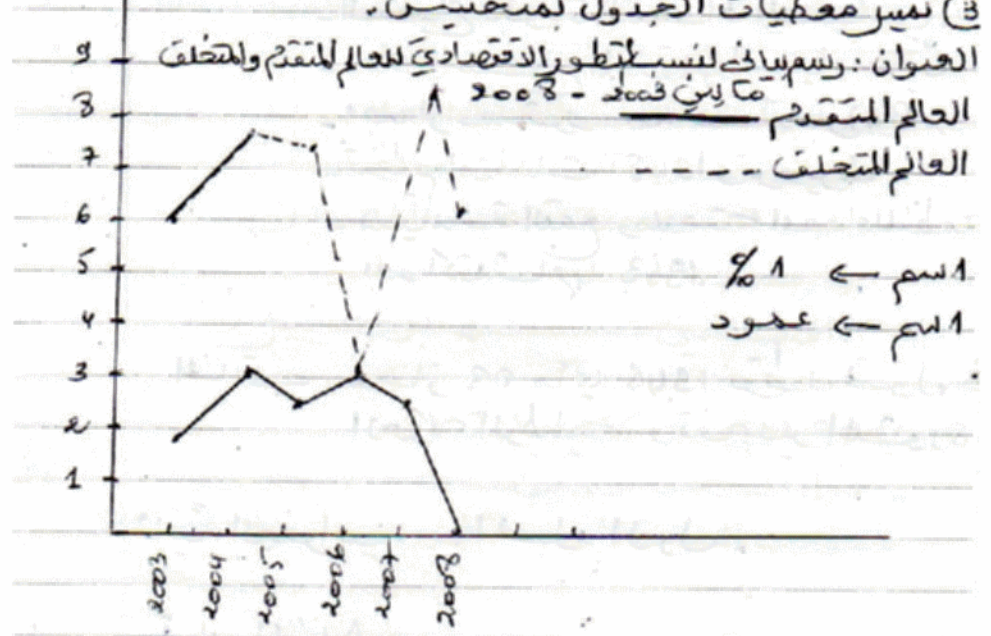 ③ تمثيل معطيات الجدول بمنحنيين.
العنوان: رسم بياني لنسب التطور الاقتصادي للعالم المتقدم والمتخلف
ما بين 2003 - 2008
العالم المتقدم
العالم المتخلف
1 سم ← 1 %
1 سم ← عمود
9
8
7
6
5
4
3
2
1
2003
2004
2005
2006
2007
2008